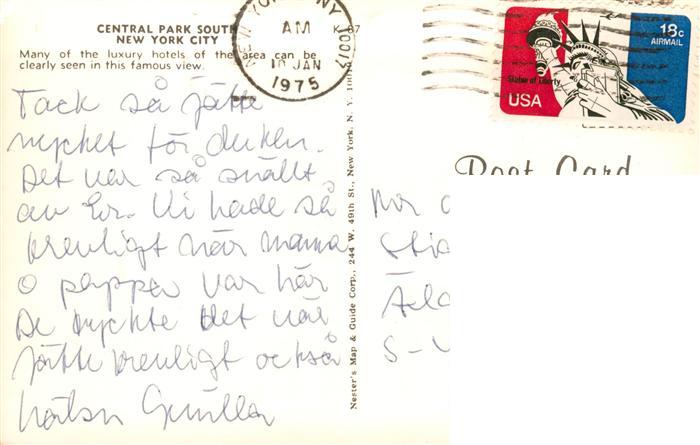 CENTRAL PARK SOUTH
NEW YORK CITY
K-
Many of the luxury hotels of the area can be
clearly seen in this famous view.
NEW YORK, NY
AM
10 JAN
1975
Tack så jätte
mycket för duken.
Det var så snällt
av Er. Vi hade så
trevligt när mamma
o pappa var här
De tyckte det var
jätte trevligt också
hälsn Gunilla
Nester's Map & Guide Corp., 244 W. 49th St., New York, N. Y. 10019
18c
AIRMAIL
Statue of Liberty
USA
Post Card
S-